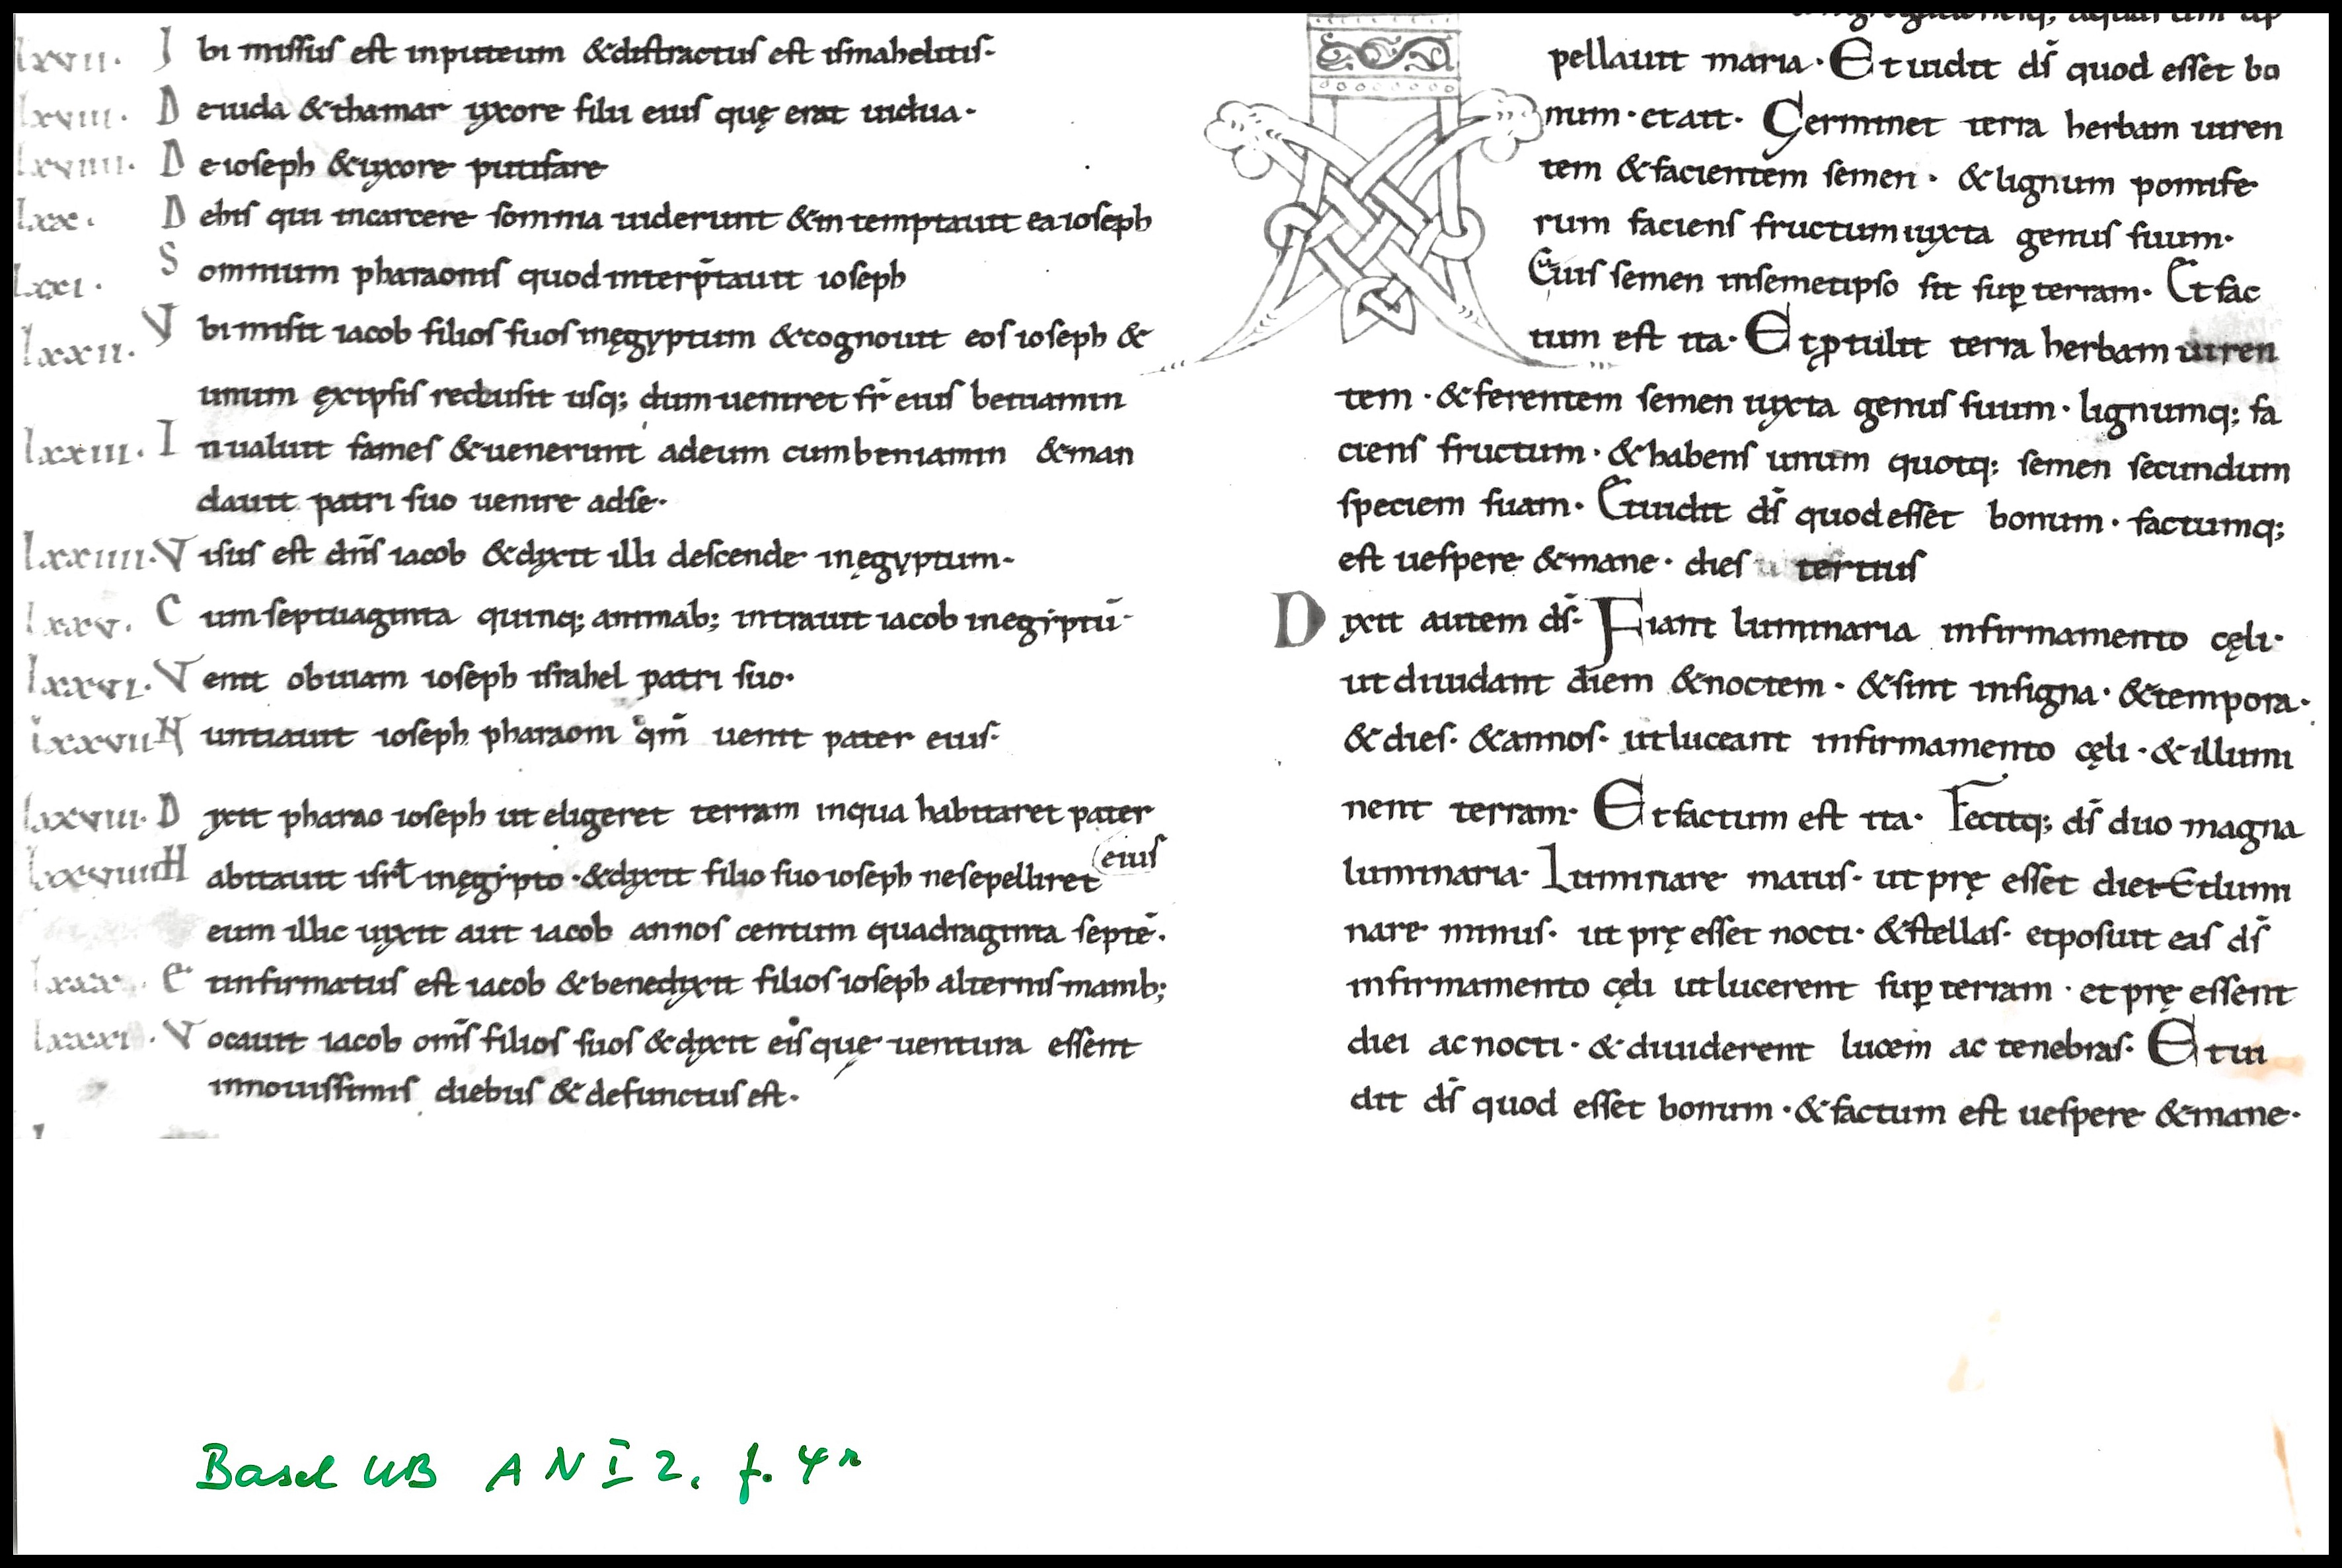 lxvii. Ibi missus est inputeum &distractus est ismahelitis·
lxviii. D eiuda &thamar uxore filii eius quę erat uidua·
lxviiii. D eioseph &uxore putifare
lxx. D ehis qui incarcere somnia uiderunt &in temptauit ea ioseph
lxxi. S omnium pharaonis quod interp̄tauit ioseph
lxxii. V bi misit iacob filios suos inęgyptum &cognouit eos ioseph &
unum exipsis reclusit usq; dum ueniret fr̄ eius beniamin
lxxiii. I nualuit fames &uenerunt adeum cum beniamin &man
dauit patri suo uenire adse·
lxxiiii. V isus est dn̄s iacob &dixit illi descende inęgyptum·
lxxv. C um septuaginta quinq; animab; intrauit iacob inegiptū·
lxxvi. V enit obuiam ioseph israhel patri suo·
lxxvii N untiauit ioseph pharaoni qm̄ uenit pater eius·
lxxviii· D ixit pharao ioseph ut eligeret terram inqua habitaret pater
eius
lxxviiii H abitauit isrł inęgipto·&dixit filio suo ioseph nesepelliret
eum illic uixit aut iacob annos centum quadraginta septē·
lxxx. E tinfirmatus est iacob &benedixit filios ioseph alternis manib;
lxxxi. V ocauit iacob om̄s filios suos &dixit eis quę uentura essent
innouissimis diebus &defunctus est·
pellauit maria· Et uidit ds̄ quod esset bo
num·etait· Germinet terra herbam uiren
tem &facientem semen· &lignum pomife
rum faciens fructum iuxta genus suum·
Cuius semen insemetipso sit sup̱ terram· Et fac
tum est ita· Et ꝓtulit terra herbam uiren
tem·&ferentem semen iuxta genus suum·lignumq; fa
ciens fructum·&habens unum quotq; semen secundum
speciem suam· Etuidit ds̄ quod esset bonum·factumq;
est uespere &mane· dies tertius
D ixit autem ds̄· Fiant luminaria infirmamento cęli·
ut diuidant diem &noctem·&sint insigna·&tempora·
&dies·&annos· utluceant infirmamento cęli·&illumi
nent terram· Et factum est ita· Fecitq; ds̄ duo magna
luminaria· Luminare maius· ut prę esset diei·Etlumi
nare minus· ut prę esset nocti·&stellas· etposuit eas ds̄
infirmamento cęli utlucerent sup̱ terram·etprę essent
diei ac nocti·&diuiderent lucem ac tenebras· Et ui
dit ds̄ quod esset bonum·&factum est uespere &mane·
Basel UB A N I 2, f. 4r